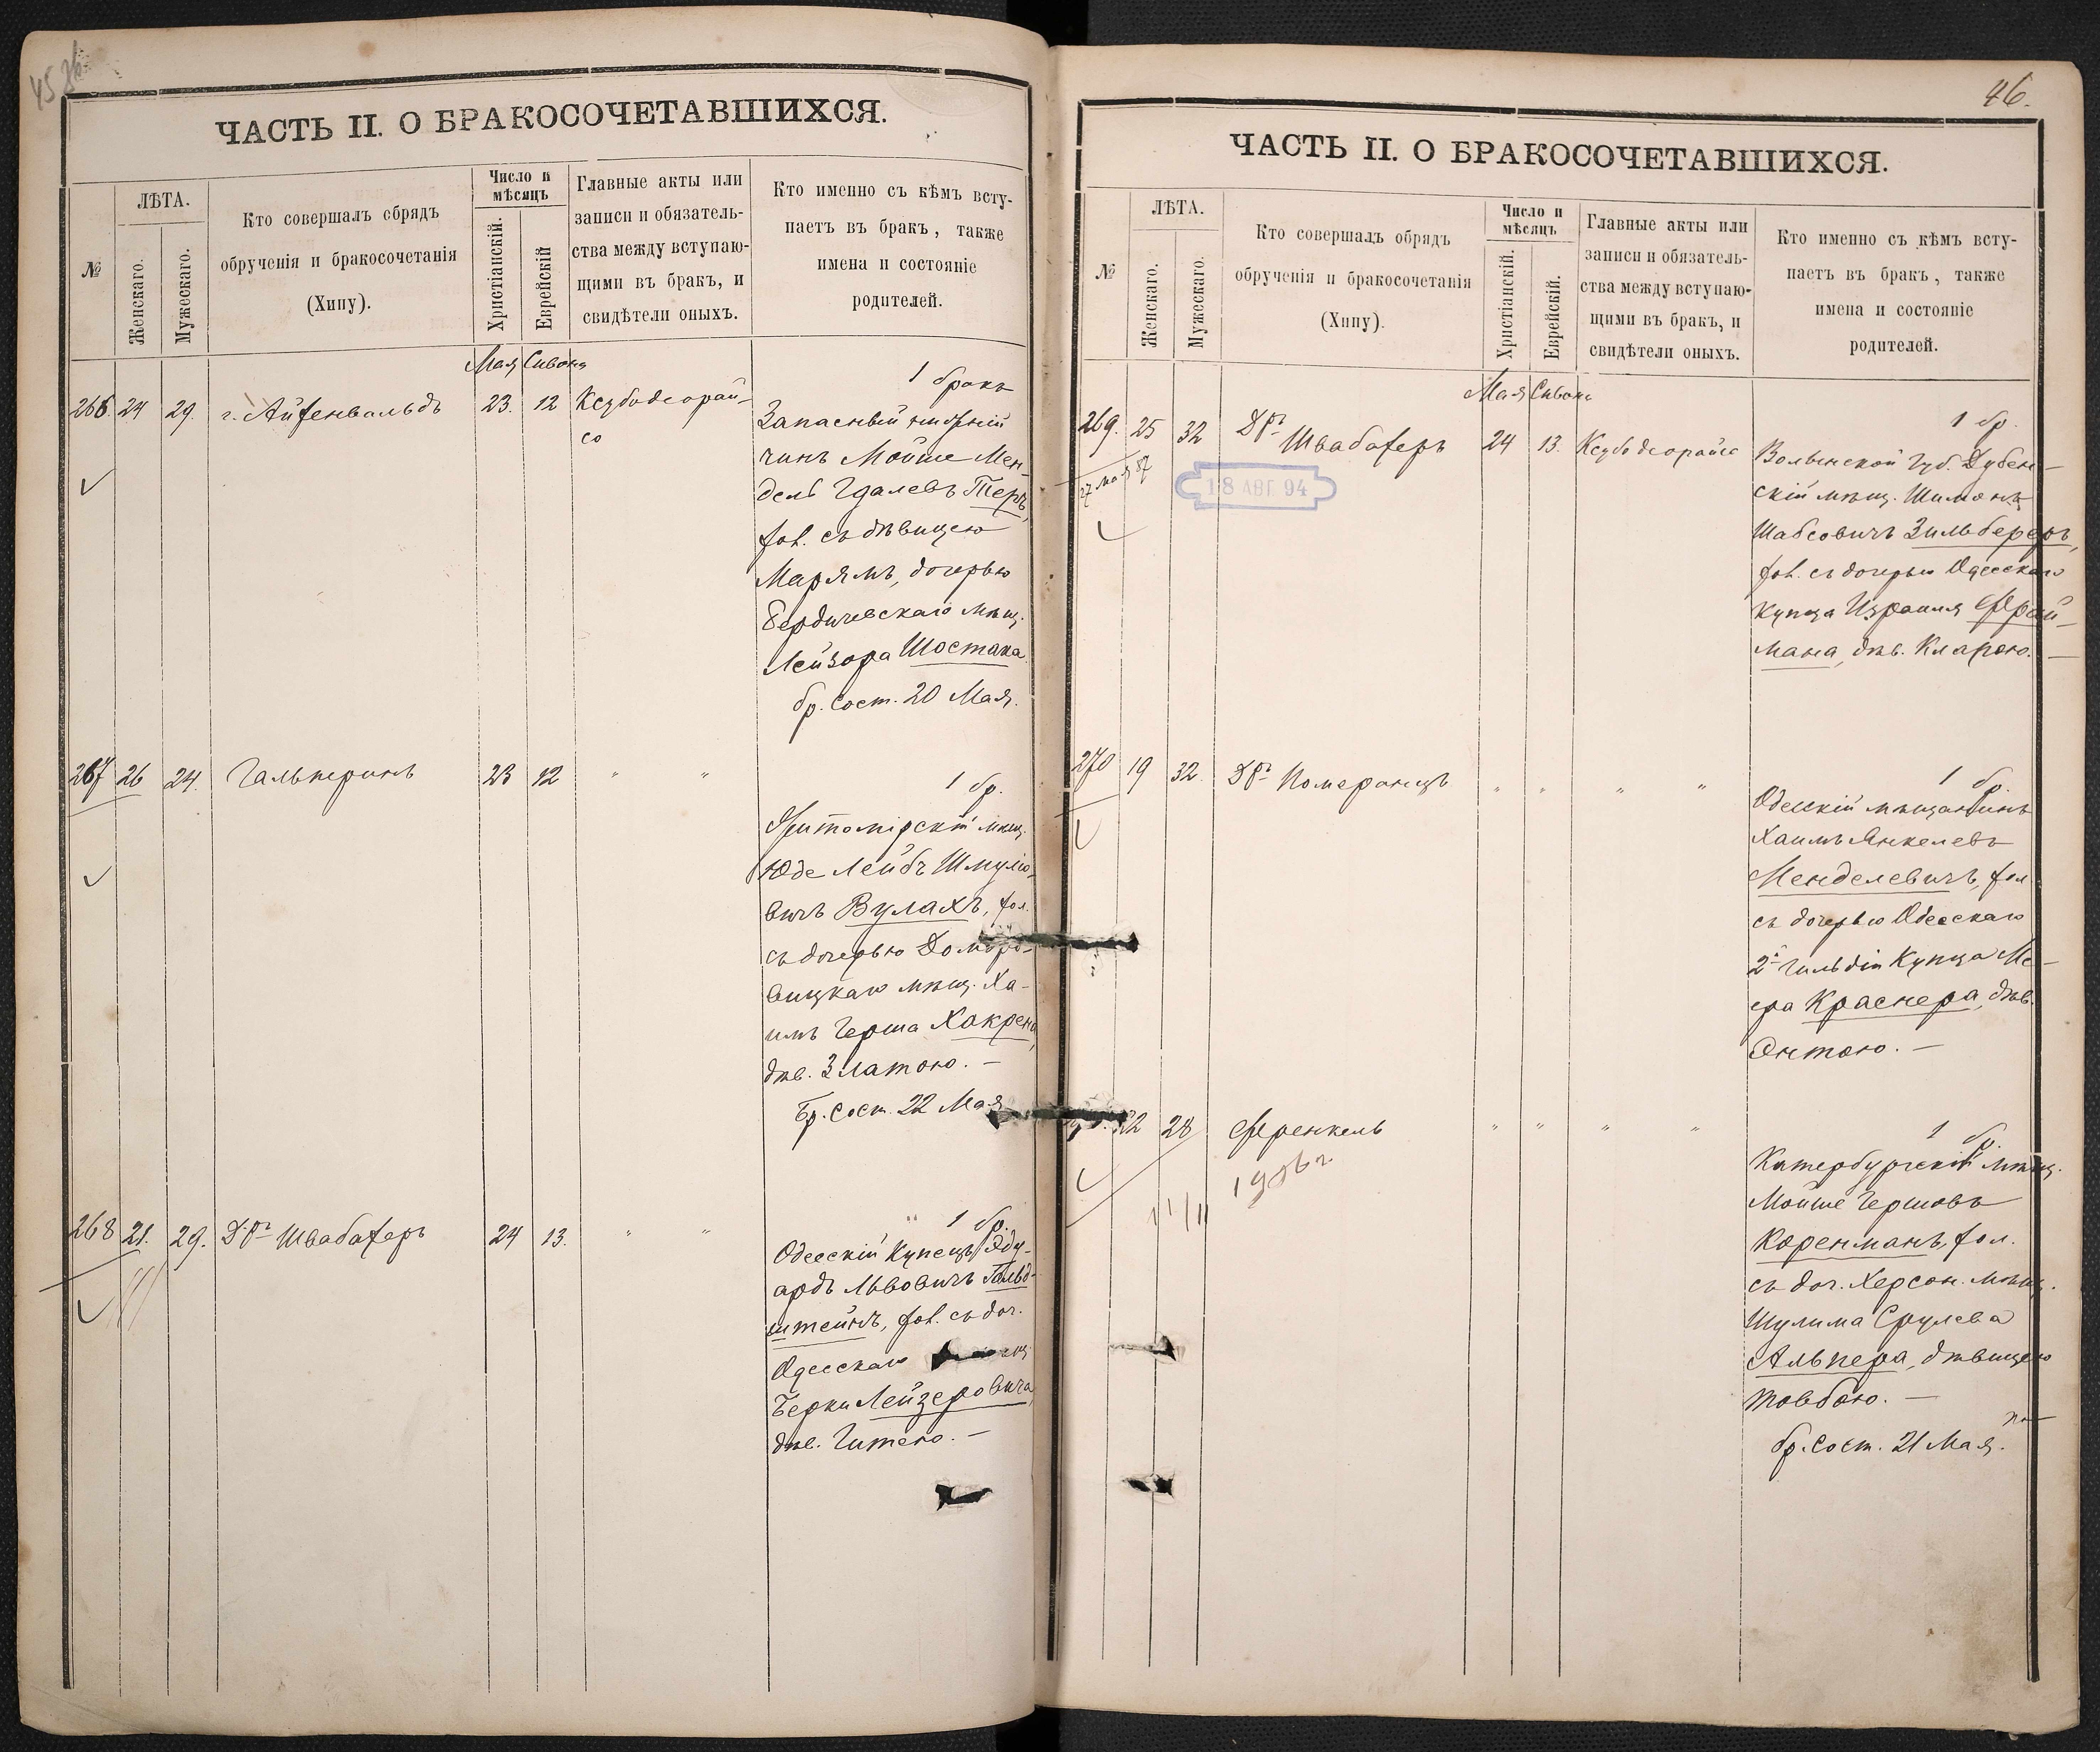 45
ЧАСТЬ II. О БРАКОСОЧЕТАВШИХСЯ.
№
ЛѢТА.
Женскаго.
Мужескаго.
Кто совершалъ обрядъ
обрученія и бракосочетанія
(Хипу).
Число и
мѣсяцъ
Христіанскій.
Еврейскій
Главные акты или
записи и обязатель-
ства между вступаю-
щими въ бракъ, и
свидѣтели оныхъ.
Кто именно съ кѣмъ всту-
паетъ въ бракъ, также
имена и состояніе
родителей.
Мая Сивона
266. 24 29. г. Айзенвальдъ 23. 12 Ксубодеорай-
со
1 бракъ
Запасный
чинъ Мойше Мен-
дель Гдалевъ Теръ,
хол. съ дѣвицею
Марямъ, дочерью
Бердичевскаго мѣщ.
Лейзора Шостака.
бр. сост. 20 Мая.
267 26 24. Гальперинъ 23 12 " "
1 бр.
Житомірскій мѣщ.
Юде Лейбъ Шмуліо-
вичъ Вулахъ, хол.
съ дочерью Домбро-
вицкаго мѣщ. Ха-
имъ Герша
дѣв. Златою. —
Бр. сост. 22 Мая
268 21. 29. Дръ Швабахеръ 24 13. " "
" 1 бр.
Одесскій Купецъ Эду-
ардъ Львовичъ Гольд-
штейнъ, хол. съ доч.
Одесскаго
Берки Лейзеровича,
дѣв. Гитею. —
46.
ЧАСТЬ II. О БРАКОСОЧЕТАВШИХСЯ.
№
ЛѢТА.
Женскаго.
Мужескаго.
Кто совершалъ обрядъ
обрученія и бракосочетанія
(Хипу).
Число и
мѣсяцъ
Христіанскій.
Еврейскій.
Главные акты или
записи и обязатель-
ства между вступаю-
щими въ бракъ, и
свидѣтели оныхъ.
Кто именно съ кѣмъ всту-
паетъ въ бракъ, также
имена и состояніе
родителей.
Мая Сивона
269. 25 32 Дръ Швабахеръ 24 13. Ксубодеорайсо
27 мая 87
18 АВГ. 94
1 бр.
Волынской Губ. Дубен-
скій мѣщ. Шимонъ
Шабсовичъ Зильбереръ,
хол. съ дочерью Одесскаго
Купца Израиля Фрей-
мана, дѣв. Кларою. —
270 19 32. Дръ Померанцъ " " " "
1 бр.
Одесскій мѣщанинъ
Хаимъ Янкелевъ
Менделевичъ, хол.
съ дочерью Одесскаго
2й гильдіи Купца Ме-
ера Краснера, дѣв.
Энтою. —
22 28 Френкель " " " "
1 бр.
Катербургскій мѣщ.
Мойше Гершовъ
Коренманъ, хол.
съ доч. Херсон. мѣщ.
Шулима Срулева
Альпера, дѣвицею
Товбою. —
бр. сост. 21 Мая.